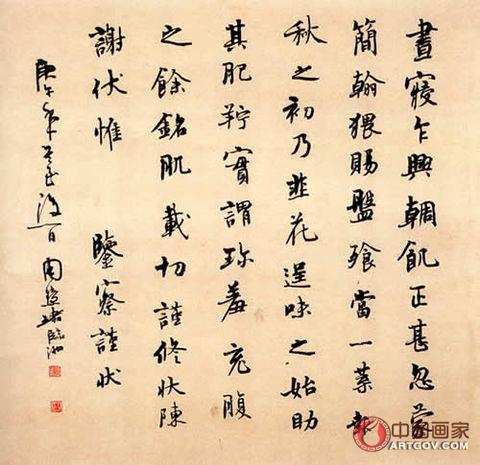 晝寢乍興輖飢正甚忽蒙
簡翰猥賜盤飧當一葉報
秋之初乃韭花逞味之始助
其肥羜實謂珍羞充腹
之餘銘肌載切謹修狀陳
謝伏惟 鑒察謹狀
庚午年
中国画家
ARTGOV.COM